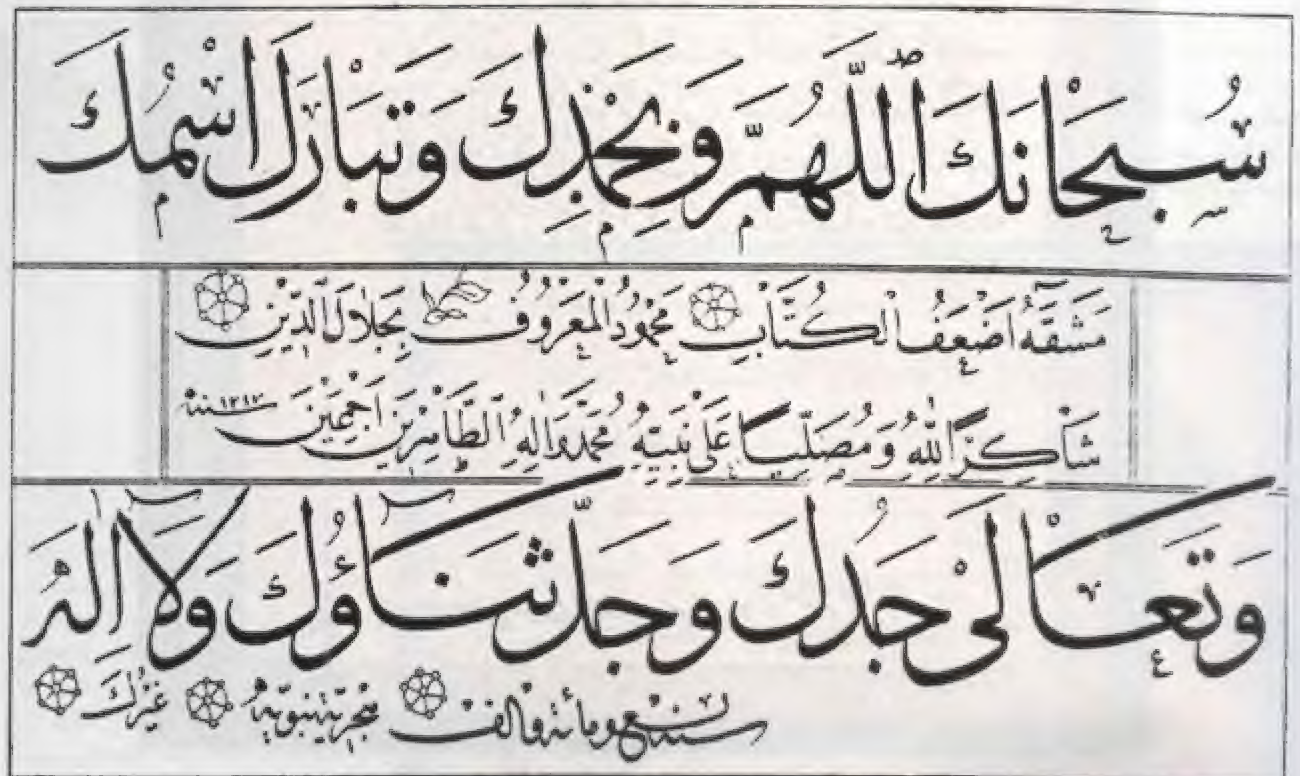 سُبْحَانَكَ ٱللّٰهُمَّ وَبِحَمْدِكَ وَتَبَارَكَ اسْمُكَ
مَشَقَهُ اَضْعَفُ الْكُتَّابِ مَحْمُودُ الْمَعْرُوفِ بِجَلَالَ الدِّينِ
شَاكِرًا لِلّٰهِ وَمُصَلِّيًا عَلَى نَبِيِّهِ مُحَمَّدٍ وَاٰلِهِ الطَّاهِرِينَ اَجْمَعِينَ سنة ١٢١٢
وَتَعَالٰى جَدُّكَ وَجَلَّ ثَنَاؤُكَ وَلَا اِلٰهَ
سنة تسع ومائة والف هجرية نبوية غَيْرُكَ